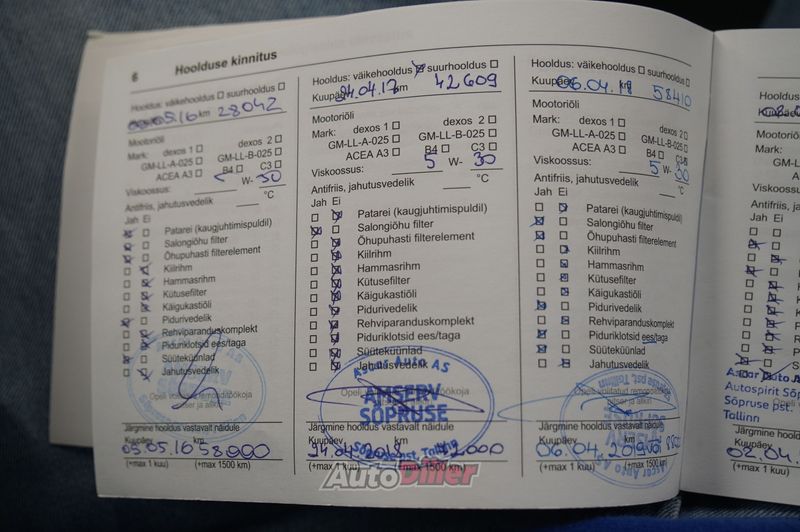 6 Hoolduse kinnitus
Hooldus: väikehooldus suurhooldus
05.16 km 28042
Mootoriõli
Mark: dexos 1 dexos 2
GM-LL-A-025 GM-LL-B-025
ACEA A3 B4 C3
Viskoossus: 5 W- 30
Antifriis, jahutusvedelik °C
Jah Ei
Patarei (kaugjuhtimispuldil)
Salongiõhu filter
Õhupuhasti filterelement
Kiilrihm
Hammasrihm
Kütusefilter
Käigukastiõli
Pidurivedelik
Rehviparanduskomplekt
Piduriklotsid ees/taga
Süüteküünlad
Jahutusvedelik
Järgmine hooldus vastavalt näidule
Kuupäev km
05.05.16 58000
(+max 1 kuu) (+max 1500 km)
Hooldus: väikehooldus suurhooldus
Kuupäev 24.04.17 km 42609
Mootoriõli
Mark: dexos 1 dexos 2
GM-LL-A-025 GM-LL-B-025
ACEA A3 B4 C3
Viskoossus: 5 W- 30
Antifriis, jahutusvedelik °C
Jah Ei
Patarei (kaugjuhtimispuldil)
Salongiõhu filter
Õhupuhasti filterelement
Kiilrihm
Hammasrihm
Kütusefilter
Käigukastiõli
Pidurivedelik
Rehviparanduskomplekt
Piduriklotsid ees/taga
Süüteküünlad
Jahutusvedelik
Ascar Auto AS
AMSERV
SÕPRUSE
Sõpruse pst. Tallinn
Järgmine hooldus vastavalt näidule
Kuupäev km
24.04.2018
(+max 1 kuu) (+max 1500 km)
Hooldus: väikehooldus suurhooldus
Kuupäev 06.04.18 km 58410
Mootoriõli
Mark: dexos 1 dexos 2
GM-LL-A-025 GM-LL-B-025
ACEA A3 B4 C3
Viskoossus: 5 W- 30
Antifriis, jahutusvedelik °C
Jah Ei
Patarei (kaugjuhtimispuldil)
Salongiõhu filter
Õhupuhasti filterelement
Kiilrihm
Hammasrihm
Kütusefilter
Käigukastiõli
Pidurivedelik
Rehviparanduskomplekt
Piduriklotsid ees/taga
Süüteküünlad
Jahutusvedelik
Sõpruse pst. Tallinn
Ascar Auto AS
Järgmine hooldus vastavalt näidule
Kuupäev km
06.04.2019
(+max 1 kuu) (+max 1500 km)
Mootoriõli
Mark:
Viskoossus:
Antifriis,
Jah Ei
Ascar Auto
Autospirit Sõ
Sõpruse pst.
Tallinn
Järgmine
Kuupäev
02.04.
(+max 1 kuu)
AutoDiiler